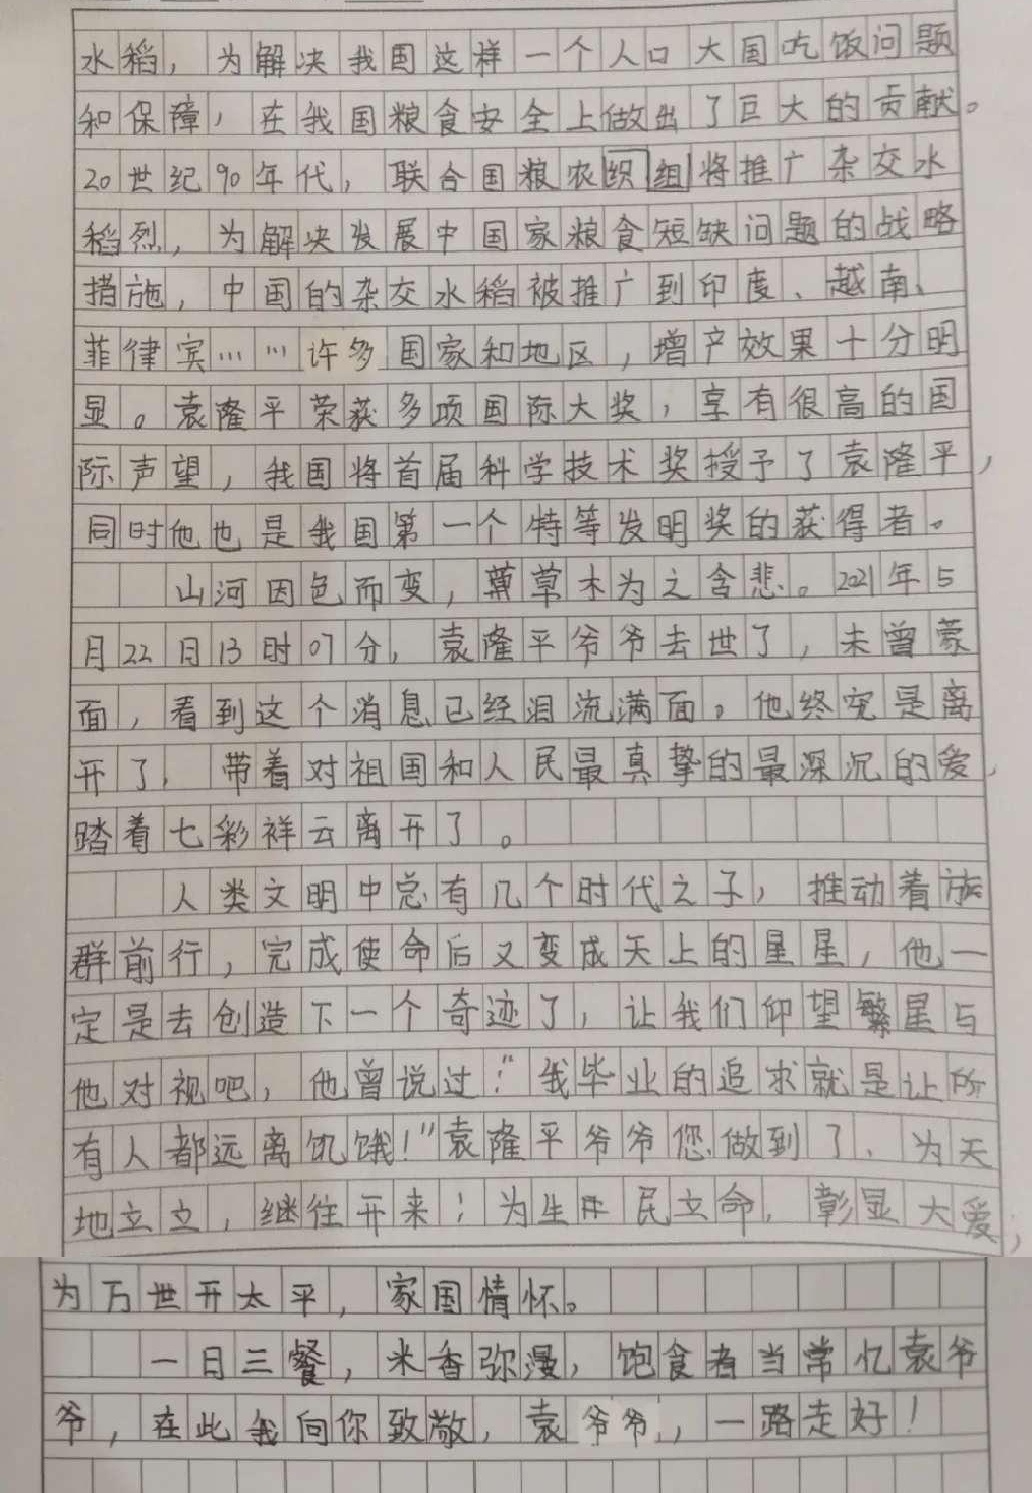 水稻，为解决我国这样一个人口大国吃饭问题
和保障，在我国粮食安全上做出了巨大的贡献。
20世纪90年代，联合国粮农织组将推广杂交水
稻烈，为解决发展中国家粮食短缺问题的战略
措施，中国的杂交水稻被推广到印度、越南、
菲律宾……许多国家和地区，增产效果十分明
显。袁隆平荣获多项国际大奖，享有很高的国
际声望，我国将首届科学技术奖授予了袁隆平，
同时他也是我国第一个特等发明奖的获得者。
山河因色而变，草木为之含悲。2021年5
月22日13时07分，袁隆平爷爷去世了，未曾蒙
面，看到这个消息已经泪流满面。他终究是离
开了，带着对祖国和人民最真挚的最深沉的爱，
踏着七彩祥云离开了。
人类文明中总有几个时代之子，推动着族
群前行，完成使命后又变成天上的星星，他一
定是去创造下一个奇迹了，让我们仰望繁星与
他对视吧，他曾说过："我毕业的追求就是让所
有人都远离饥饿！"袁隆平爷爷您做到了、为天
地立立，继往开来；为生民立命，彰显大爱，
为万世开太平，家国情怀。
一日三餐，米香弥漫，饱食者当常忆袁爷
爷，在此我向你致敬，袁爷爷，一路走好！